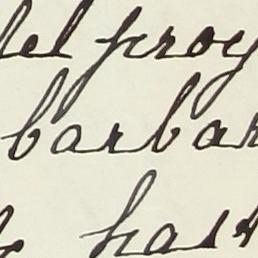 del proy
barbar
hast